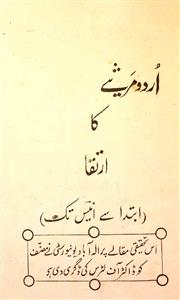 اُردو مرثیے
کا
ارتقا
(ابتدا سے انیس تک)
اس تحقیقی مقالے پر الہ آباد یونیورسٹی نے مصنف
کو ڈاکٹر آف لٹرس کی ڈگری دی ہے